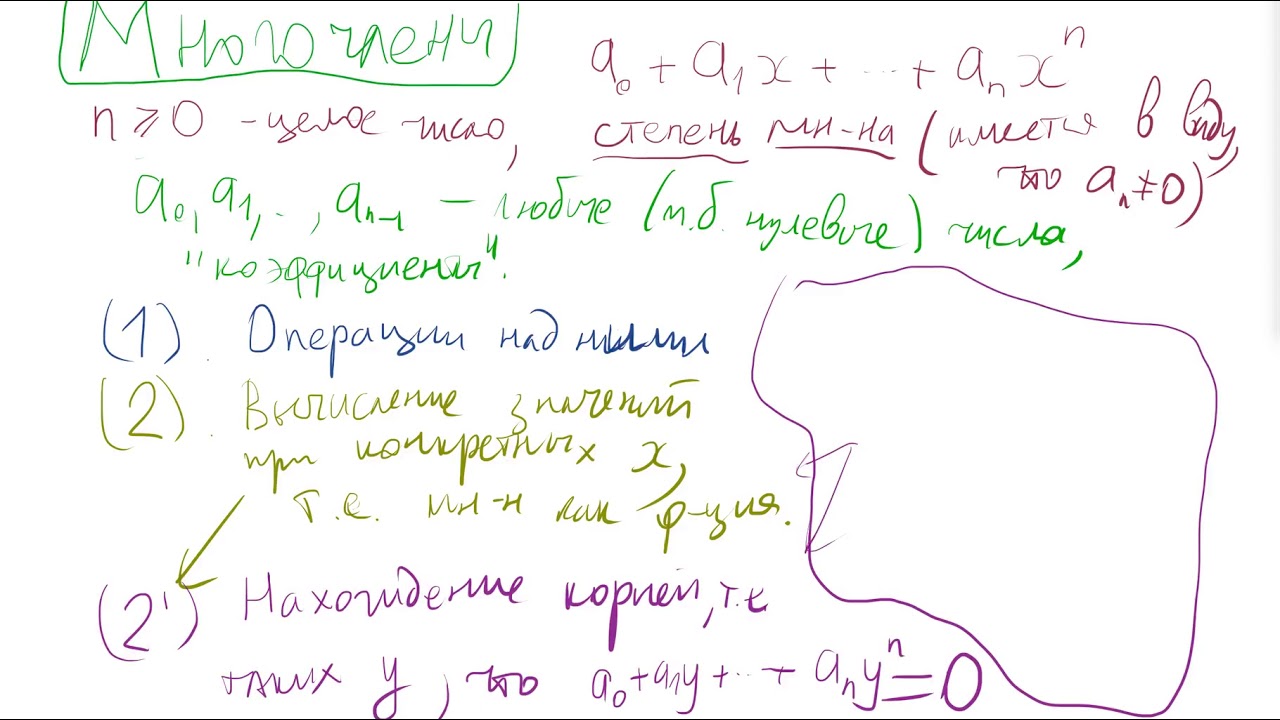 Многочлены
a₀ + a₁x + ... + aₙxⁿ
n ≥ 0 - целое число, степень мн-на (имеется в виду,
что aₙ ≠ 0)
a₀, a₁, .., aₙ₋₁ – любые (м.б. нулевые) числа,
"коэффициенты".
(1). Операции над ними
(2). Вычисление значений
при конкретных x,
т.е. мн-н как ф-ция.
(2') Нахождение корней, т.е
таких y, что a₀ + a₁y + ... + aₙyⁿ = 0